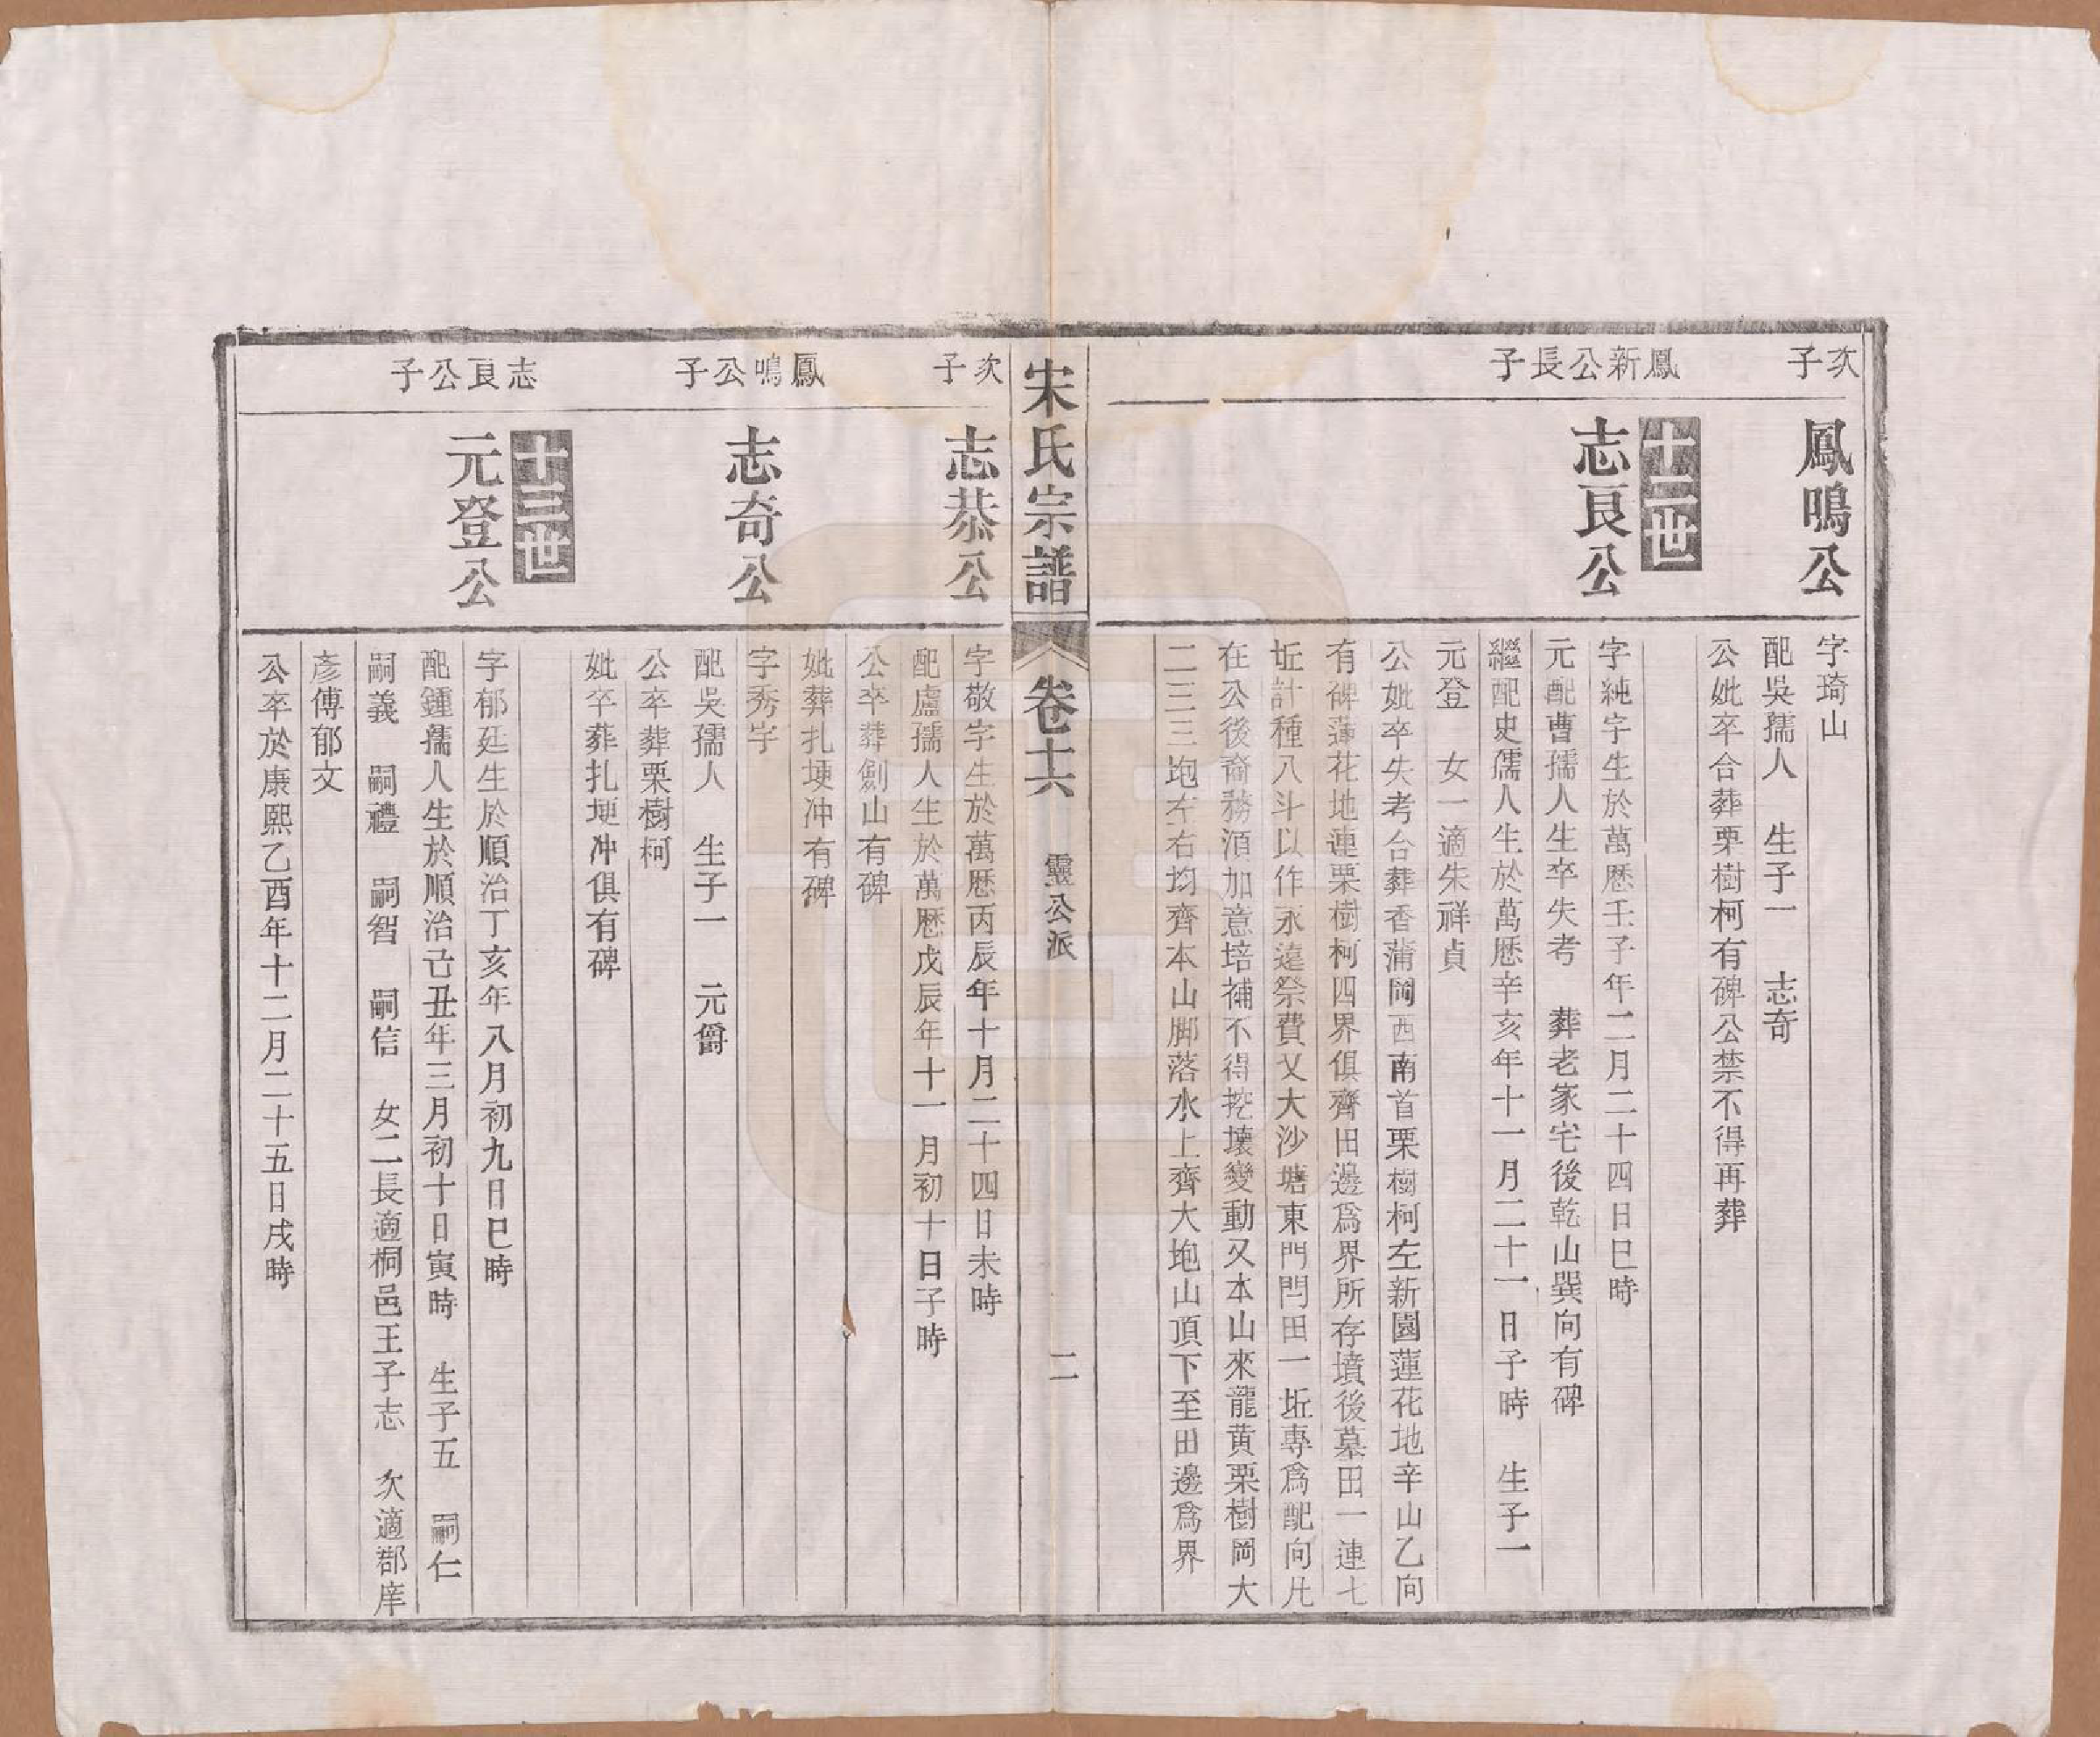 次子
鳳鳴公
字琦山
配吳孺人　生子一　志奇
公妣卒合葬栗樹柯有碑公禁不得再葬
十二世
鳳新公長子
志良公
字純宇生於萬歷壬子年二月二十四日巳時
元配曹孺人生卒失考　葬老家宅後乾山巽向有碑
繼配史孺人生於萬歷辛亥年十一月二十一日子時　生子一
元登　女一適朱祥貞
公妣卒失考合葬香蒲岡西南首栗樹柯左新園蓮花地辛山乙向
有碑蓮花地連栗樹柯四界俱齊田邊爲界所存墳後墓田一連七
坵計種八斗以作永遠祭費又大沙塘東門閂田一坵專爲配向凡
在公後裔務湏加意培補不得挖壞變動又本山來龍黃栗樹岡大
二三三垉左右均齊本山脚落水上齊大垉山頂下至田邊爲界
宋氏宗譜
卷十六
靈公派
二
次子
志恭公
字敬宇生於萬歷丙辰年十月二十四日未時
配盧孺人生於萬歷戊辰年十一月初十日子時
公卒葬劍山有碑
妣葬扎埂冲有碑
鳳鳴公子
志奇公
字秀宇
配吳孺人　生子一　元爵
公卒葬栗樹柯
妣卒葬扎埂冲俱有碑
十三世
志良公子
元登公
字郁廷生於順治丁亥年八月初九日巳時
配鍾孺人生於順治己丑年三月初十日寅時　生子五　嗣仁
嗣義　嗣禮　嗣智　嗣信　女二長適桐邑王子志　次適郡庠
彥傅郁文
公卒於康熙乙酉年十二月二十五日戌時